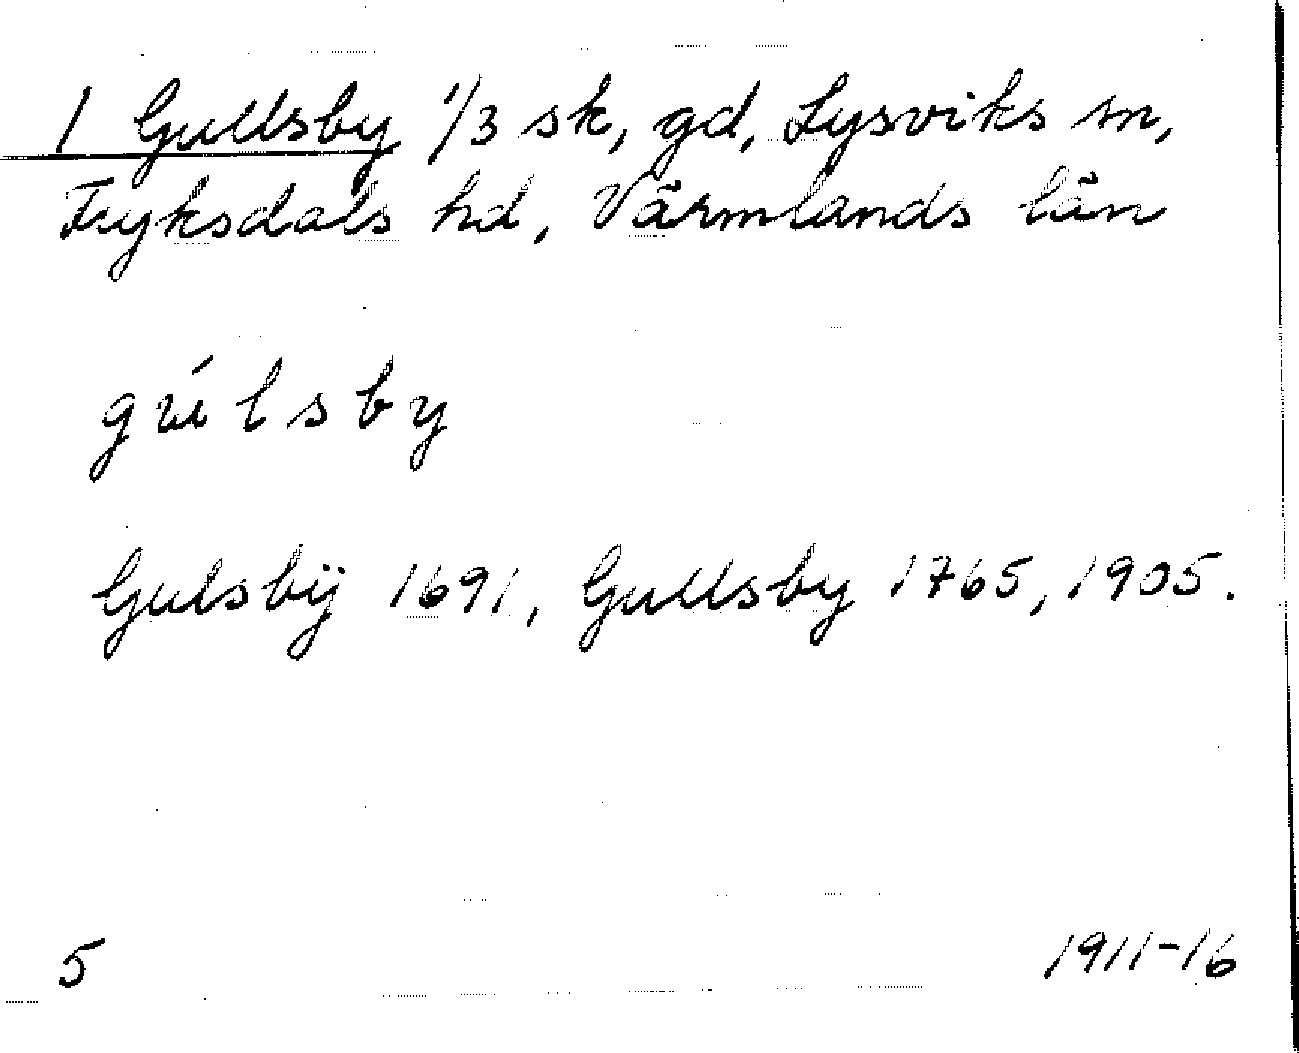 1 Gullsby 1/3 sk, gd, Lysviks sn,
Fryksdals hd, Värmlands län
gúlsby
Gulsbÿ 1691, Gullsby 1765, 1905.
5 1911-16